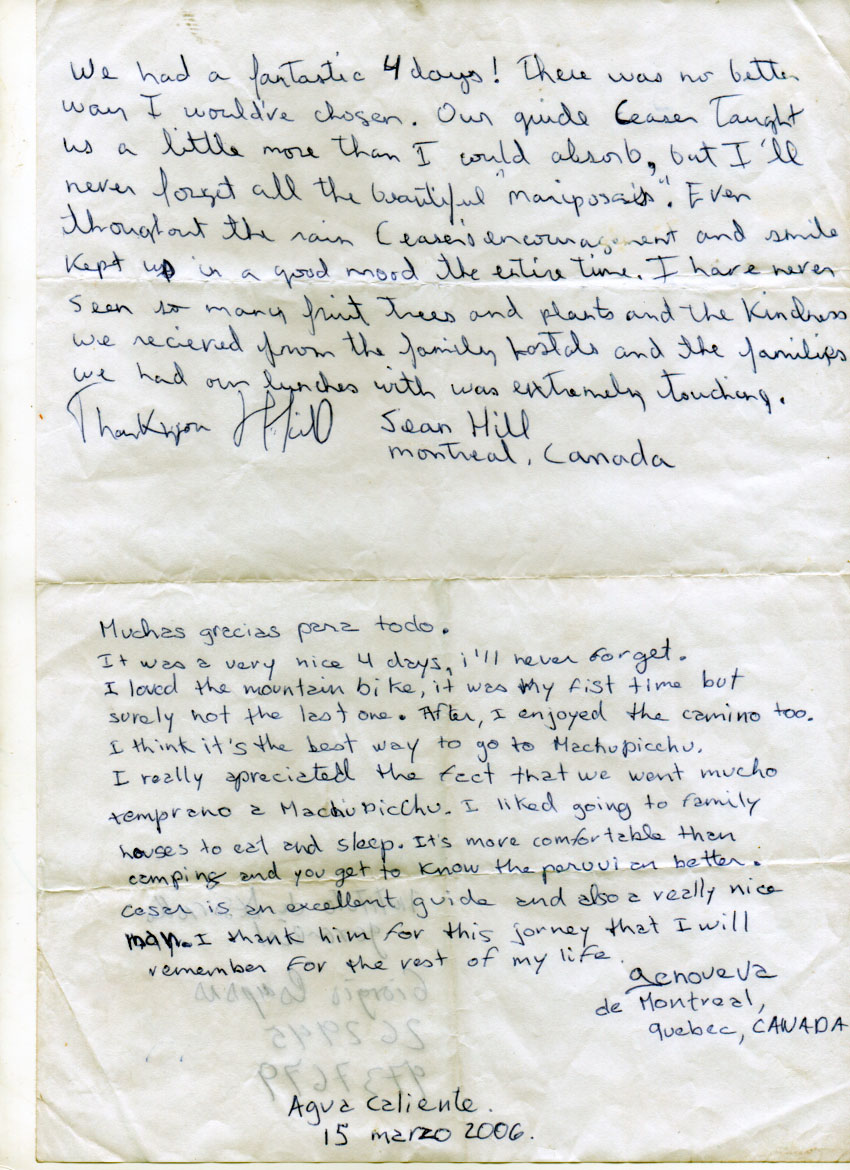 We had a fantastic 4 days! There was no better
way I would've chosen. Our guide Ceaser Taught
us a little more than I could absorb, but I'll
never forget all the beautiful "mariposa's". Even
throughout the rain Ceaser's encouragement and smile
kept up in a good mood the entire time. I have never
seen so many fruit trees and plants and the kindness
we recieved from the family hostals and the families
we had our lunches with was extremely touching.
Thank you Sean Hill
montreal, Canada
Muchas gracias para todo.
It was a very nice 4 days, i'll never forget.
I loved the mountain bike, it was my fist time but
surely not the last one. After, I enjoyed the camino too.
I think it's the best way to go to Machupicchu.
I really apreciated the fact that we went mucho
temprano a Machupicchu. I liked going to family
houses to eat and sleep. It's more comfortable than
camping and you get to know the peruvian better.
cesar is an excellent guide and also a really nice
man. I thank him for this jorney that I will
remember for the rest of my life.
Genoveva
de Montreal,
Quebec, CANADA
262945
9737679
Agua Caliente.
15 marzo 2006.